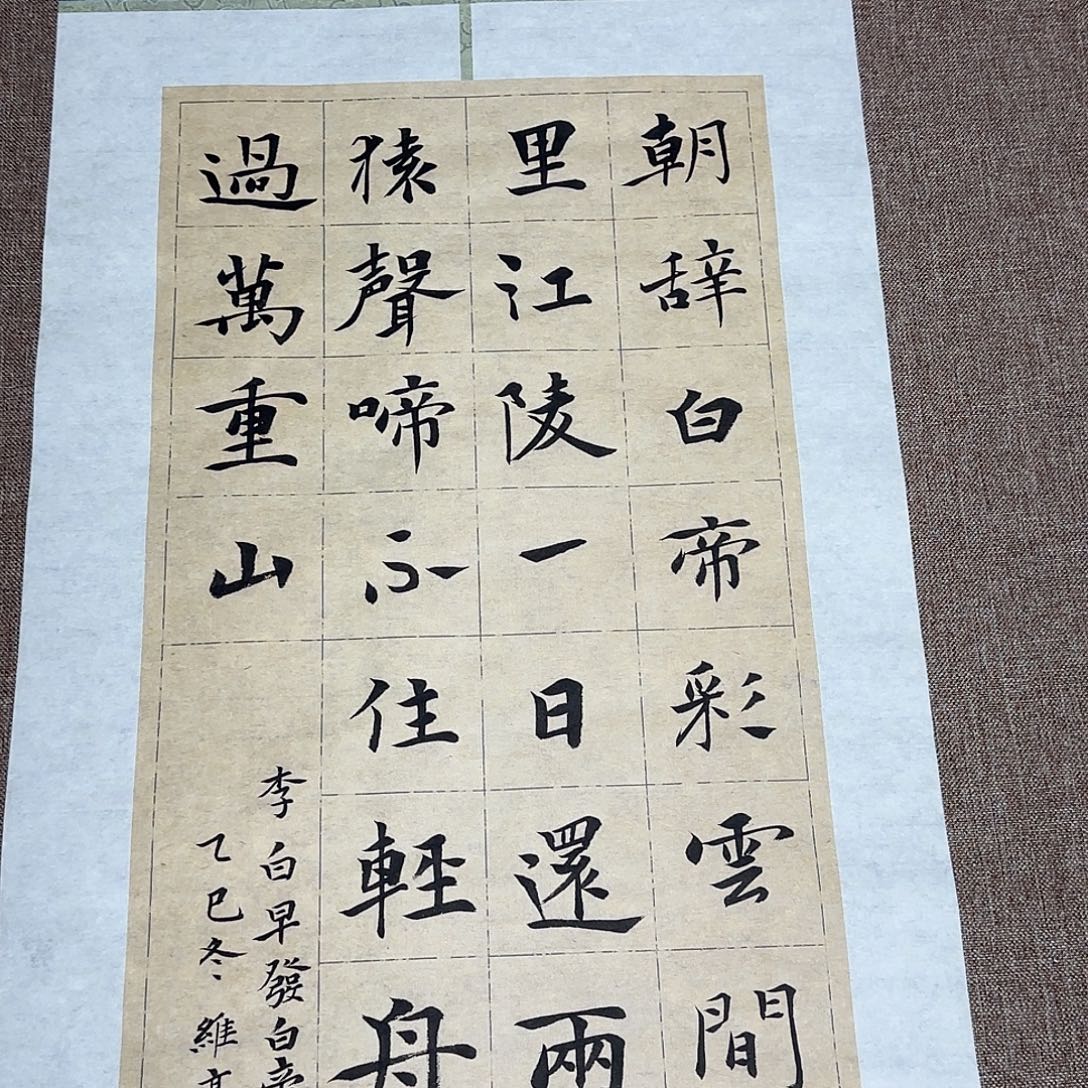 朝辞白帝彩雲間
里江陵一日還兩
猿聲啼不住輕舟
過萬重山
李白早發白帝
乙巳冬維